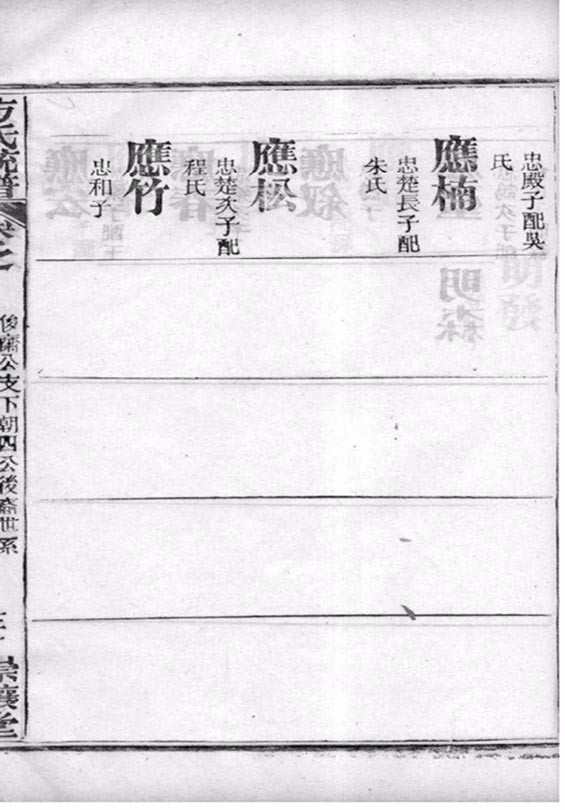 忠殿子配吳
氏
應楠
忠楚長子配
朱氏
應松
忠楚次子配
程氏
應竹
忠和子
方氏統譜
卷之
俊齋公支下朝四公後裔世系
崇讓堂